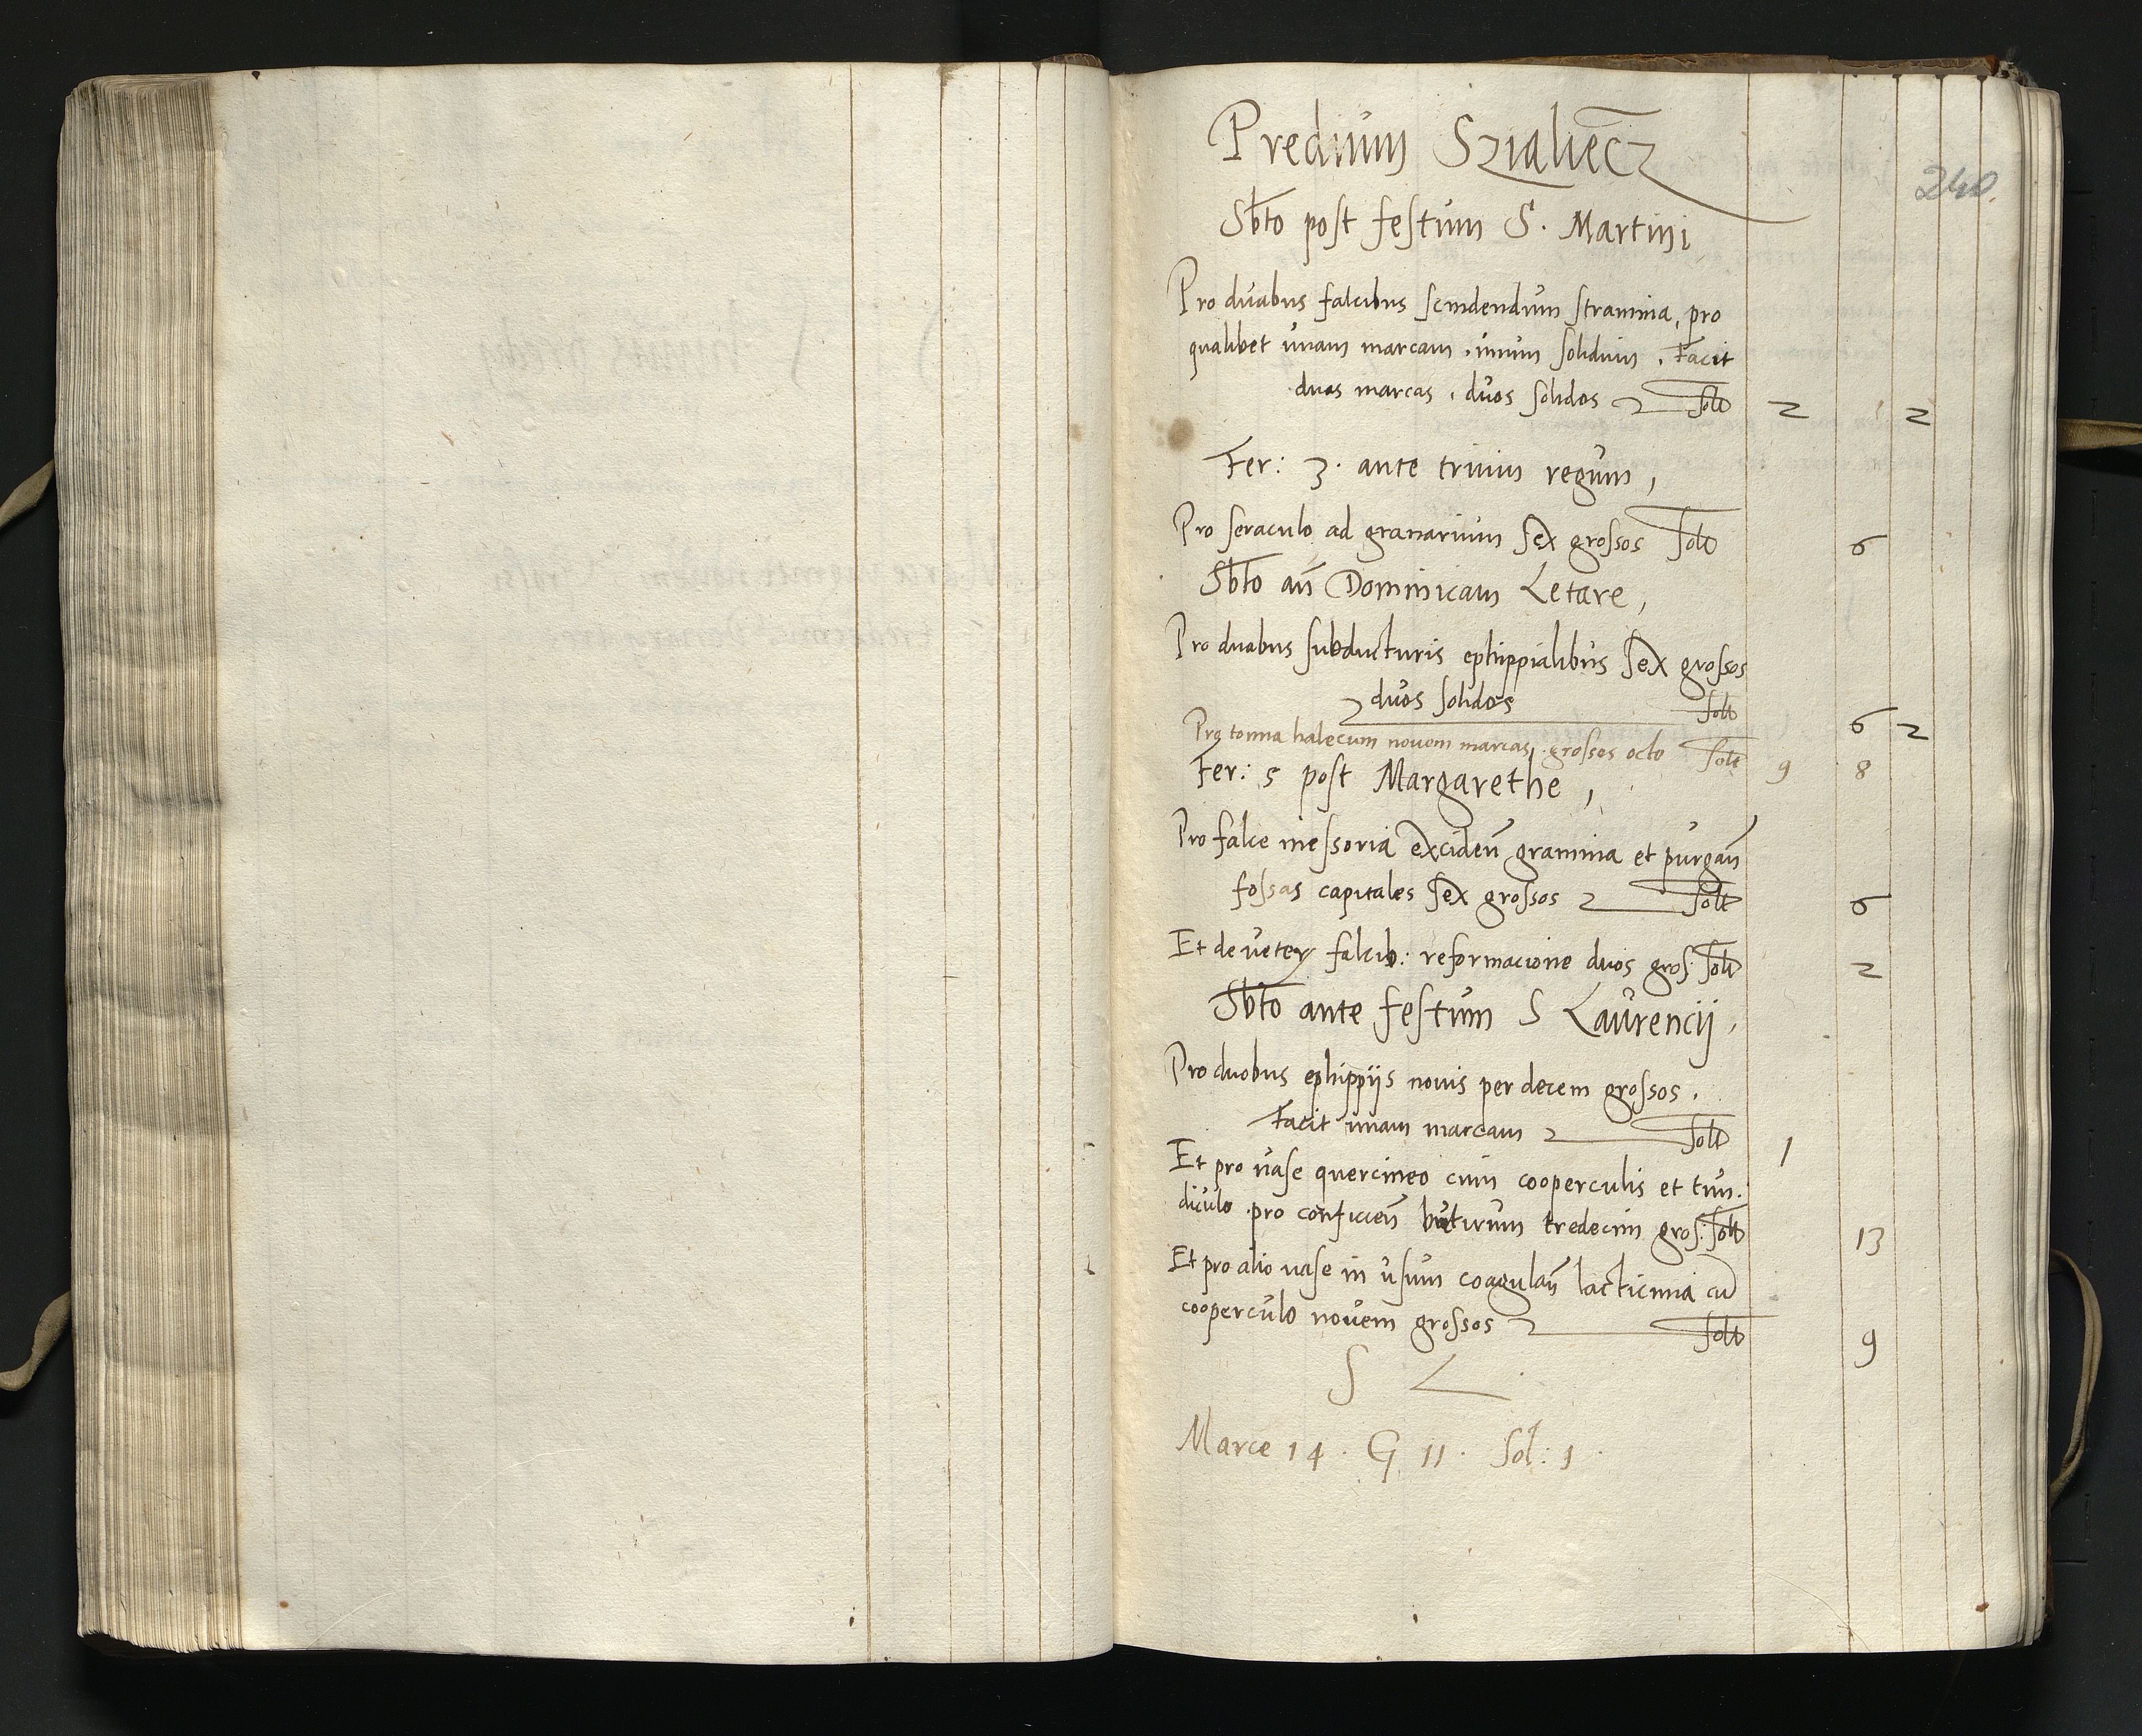 Predium Szaluecz
240.
Sbto post festum S. Martini
Pro duabus falcibus scindendum stramina, pro
qualibet unam marcam . unum solidum . Facit
duas marcas . duos solidos solt 2 2
Fer: 3. ante trium regum,
Pro seraculo ad granarium sex grossos solt 6
Sbto an Dominicam Letare,
Pro duabus subducturis ephippialibus sex grossos
duos solidos solt 6 2
Pro tonna halecum novem marcas, grossos octo solt 9 8
Fer: 5 post Margarethe,
Pro falce messoria exciden gramina et purgan
fossas capitales sex grossos solt 6
Et de veter falcib: reformacione duos gros. solt 2
Sbto ante festum S Laurencij,
Pro duobus ephippijs novis per decem grossos.
Facit unam marcam solt 1
Et pro vase quercineo cum cooperculis et tun.
diculo pro conficien butirum tredecim gros: solt 13
Et pro alio vase in usum coagulan lacticinia cu
cooperculo novem grossos solt 9
S L
Marce 14 . G 11 . Sol: 1.